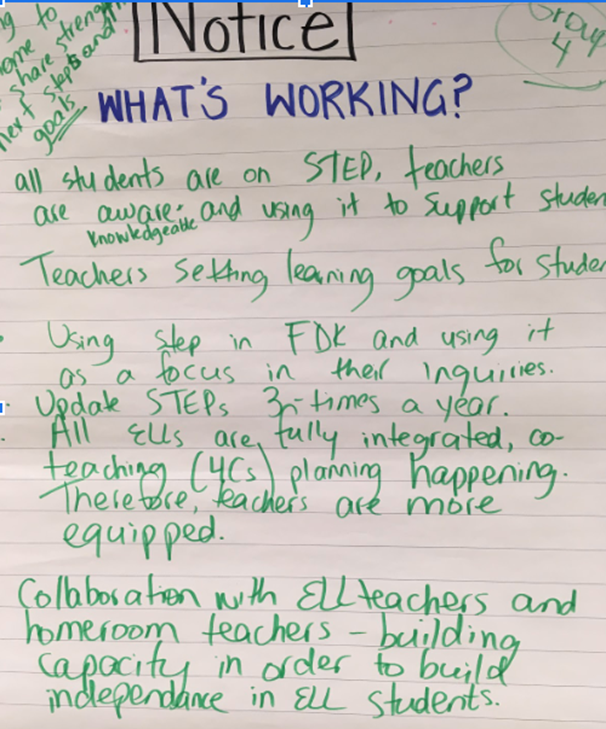 Notice
Group
4
ome to
share strength
next steps and
goals
WHAT'S WORKING?
all students are on STEP, teachers
are aware and using it to support studen
Knowledgeable
Teachers setting learning goals for studen
Using step in FDK and using it
as a focus in their inquiries.
Update STEPs 3-times a year.
All ELLs are fully integrated, co-
teaching (4Cs) planning happening.
Therefore, teachers are more
equipped.
Collaboration with ELL teachers and
homeroom teachers - building
capacity in order to build
independance in ELL students.